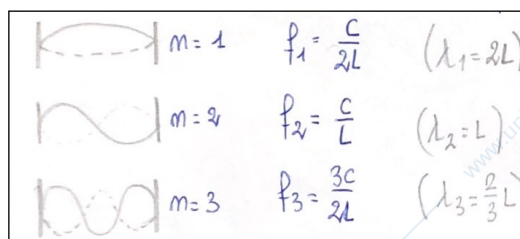 m = 1 f₁ = C/2L (λ₁ = 2L)
m = 2 f₂ = C/L (λ₂ = L)
m = 3 f₃ = 3C/2L (λ₃ = 2/3 L)